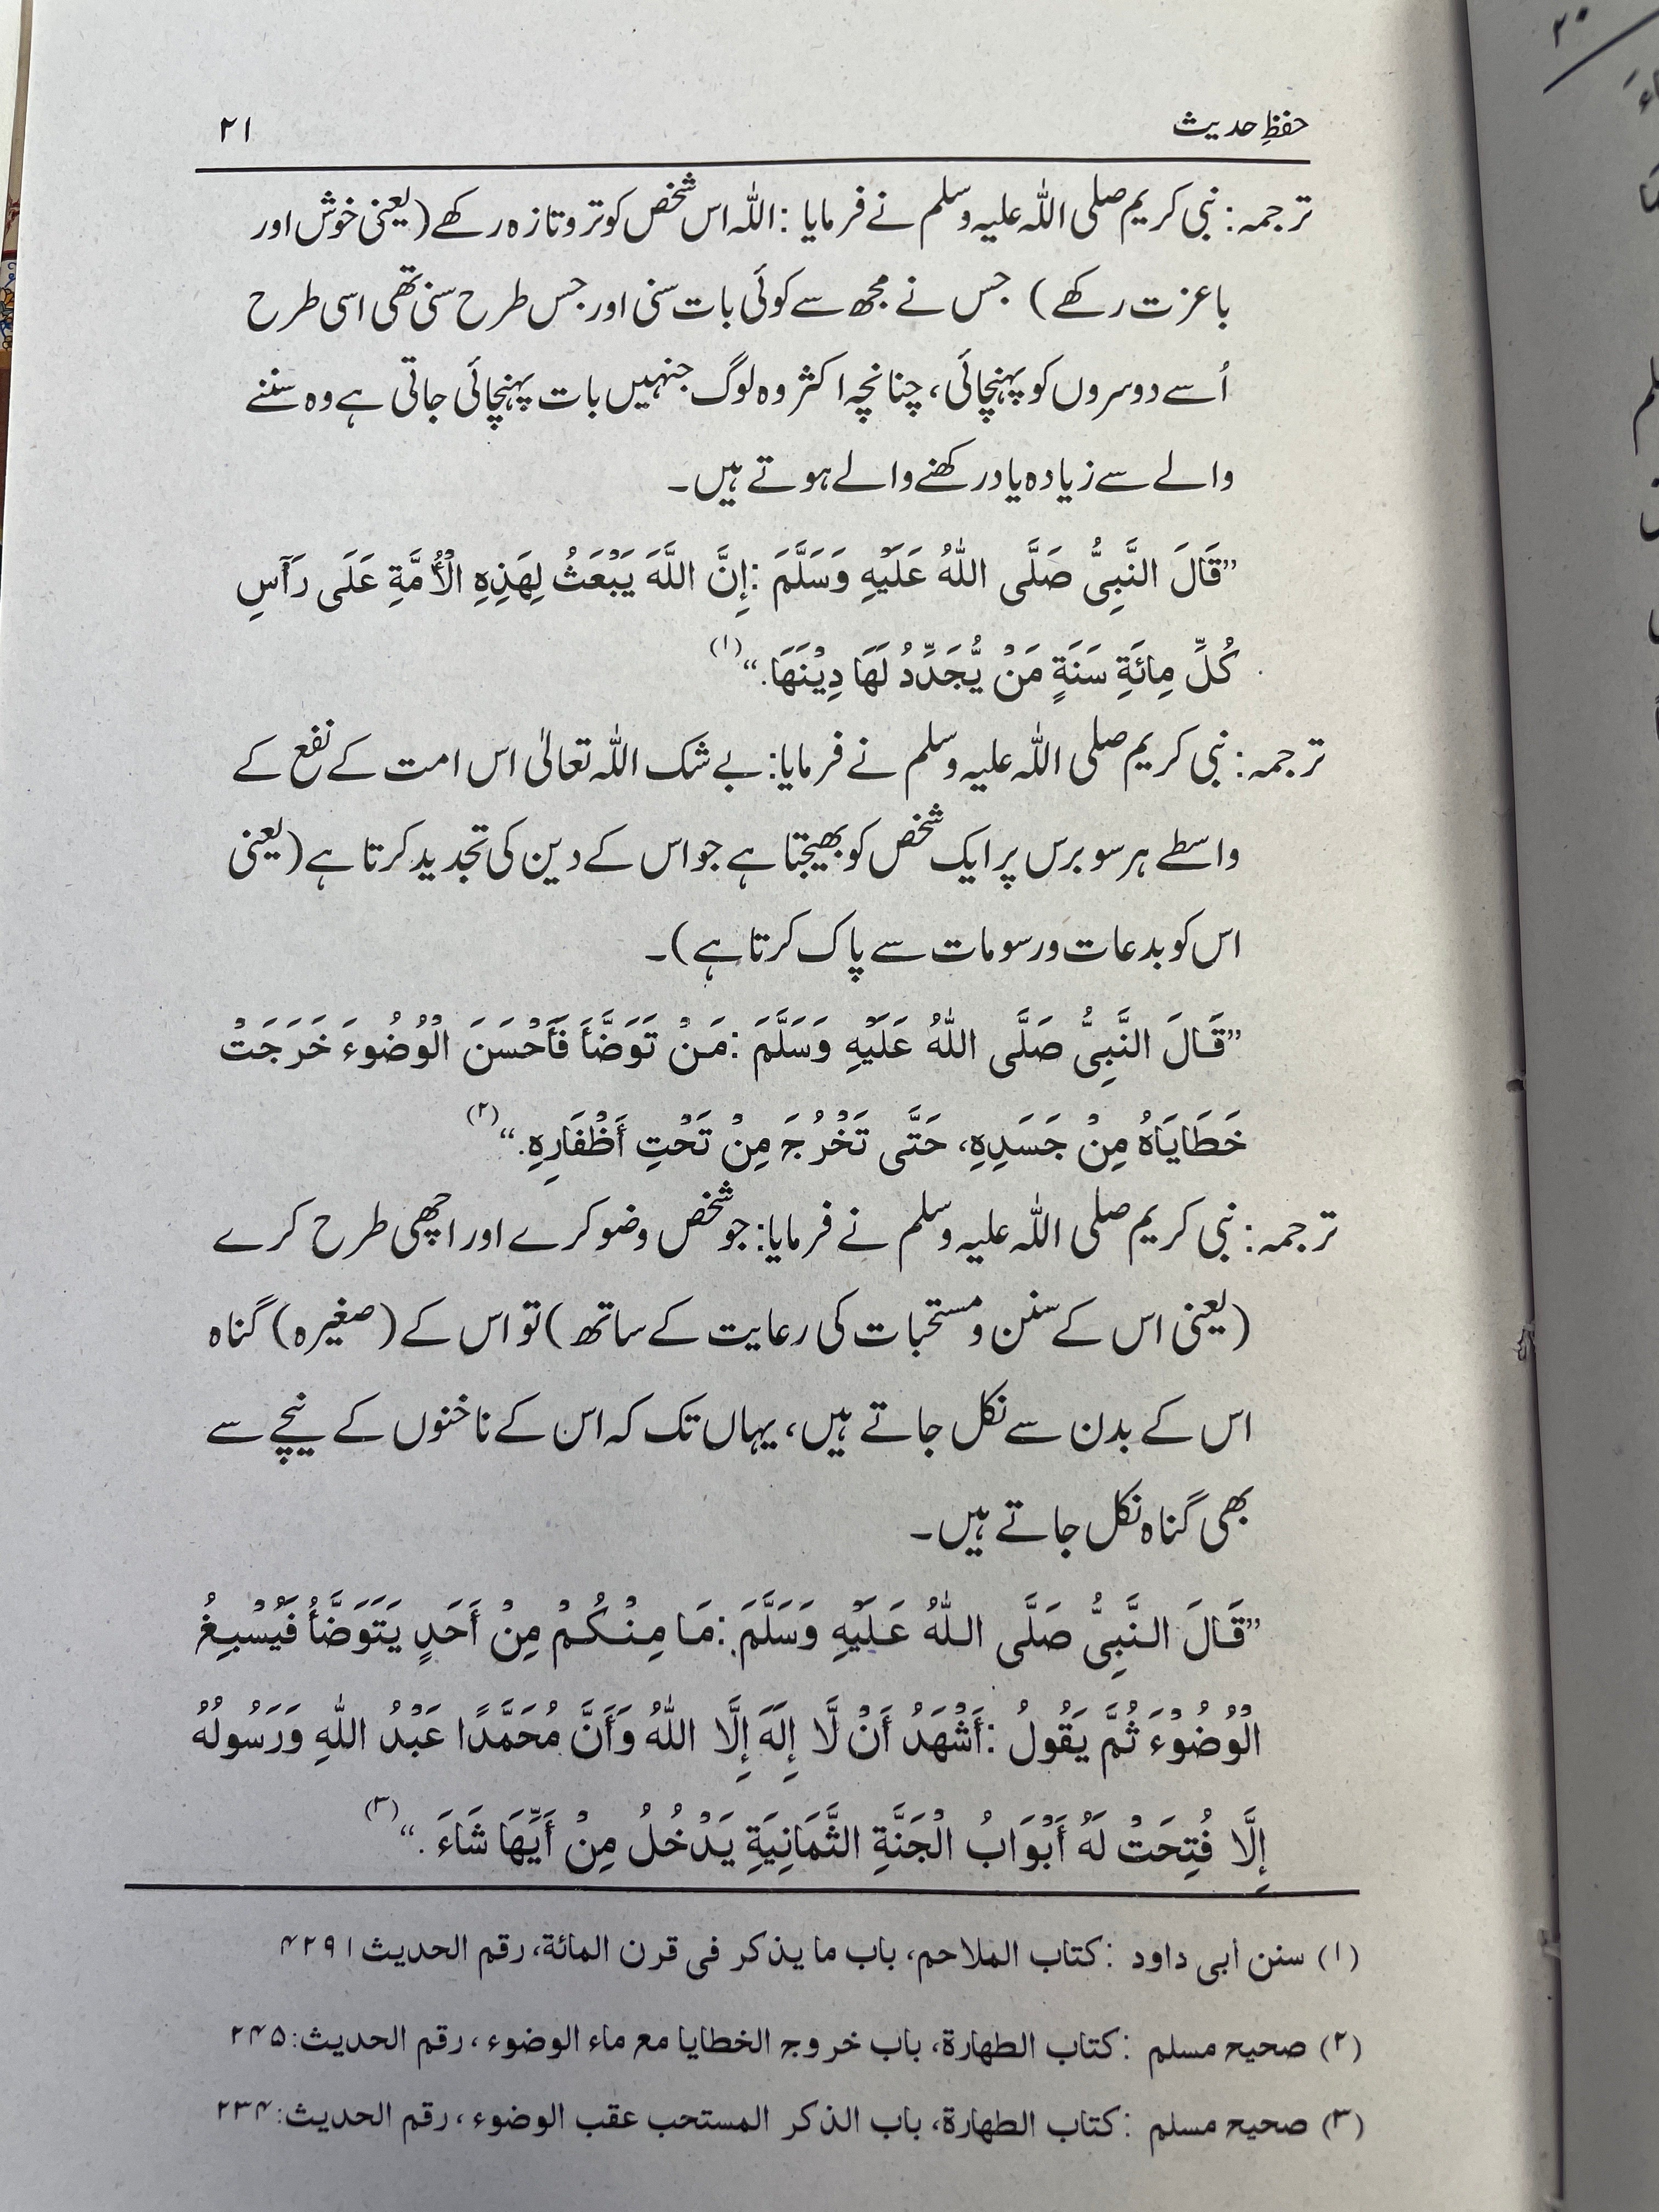 حفظِ حدیث ۲۱
ترجمہ: نبی کریم صلی اللہ علیہ وسلم نے فرمایا: اللہ اس شخص کو تروتازہ رکھے (یعنی خوش اور
باعزت رکھے) جس نے مجھ سے کوئی بات سنی اور جس طرح سنی تھی اسی طرح
اُسے دوسروں کو پہنچائی، چنانچہ اکثر وہ لوگ جنہیں بات پہنچائی جاتی ہے وہ سننے
والے سے زیادہ یاد رکھنے والے ہوتے ہیں۔
”قَالَ النَّبِیُّ صَلَّی اللهُ عَلَیْهِ وَسَلَّمَ :إِنَّ اللَّهَ یَبْعَثُ لِهَذِهِ الْأُمَّةِ عَلَی رَأْسِ
کُلِّ مِائَةِ سَنَةٍ مَنْ یُّجَدِّدُ لَهَا دِیْنَهَا.“(۱)
ترجمہ: نبی کریم صلی اللہ علیہ وسلم نے فرمایا: بے شک اللہ تعالیٰ اس امت کے نفع کے
واسطے ہر سو برس پر ایک شخص کو بھیجتا ہے جو اس کے دین کی تجدید کرتا ہے (یعنی
اس کو بدعات ورسومات سے پاک کرتا ہے)۔
”قَالَ النَّبِیُّ صَلَّی اللهُ عَلَیْهِ وَسَلَّمَ :مَنْ تَوَضَّأَ فَأَحْسَنَ الْوُضُوءَ خَرَجَتْ
خَطَایَاهُ مِنْ جَسَدِهِ، حَتَّی تَخْرُجَ مِنْ تَحْتِ أَظْفَارِهِ.“(۲)
ترجمہ: نبی کریم صلی اللہ علیہ وسلم نے فرمایا: جو شخص وضو کرے اور اچھی طرح کرے
(یعنی اس کے سنن ومستحبات کی رعایت کے ساتھ) تو اس کے (صغیرہ) گناہ
اس کے بدن سے نکل جاتے ہیں، یہاں تک کہ اس کے ناخنوں کے نیچے سے
بھی گناہ نکل جاتے ہیں۔
”قَالَ النَّبِیُّ صَلَّی اللهُ عَلَیْهِ وَسَلَّمَ :مَا مِنْکُمْ مِنْ أَحَدٍ یَتَوَضَّأُ فَیُسْبِغُ
الْوُضُوْءَ ثُمَّ یَقُولُ :أَشْهَدُ أَنْ لَّا إِلَهَ إِلَّا اللهُ وَأَنَّ مُحَمَّدًا عَبْدُ اللهِ وَرَسُولُهُ
إِلَّا فُتِحَتْ لَهُ أَبْوَابُ الْجَنَّةِ الثَّمَانِیَةِ یَدْخُلُ مِنْ أَیِّهَا شَاءَ .“(۳)
(۱) سنن أبی داود :کتاب الملاحم، باب ما یذکر فی قرن المائة، رقم الحدیث ۴۲۹۱
(۲) صحیح مسلم :کتاب الطهارة، باب خروج الخطایا مع ماء الوضوء ، رقم الحدیث:۲۴۵
(۳) صحیح مسلم :کتاب الطهارة، باب الذکر المستحب عقب الوضوء ، رقم الحدیث:۲۳۴
۲۰